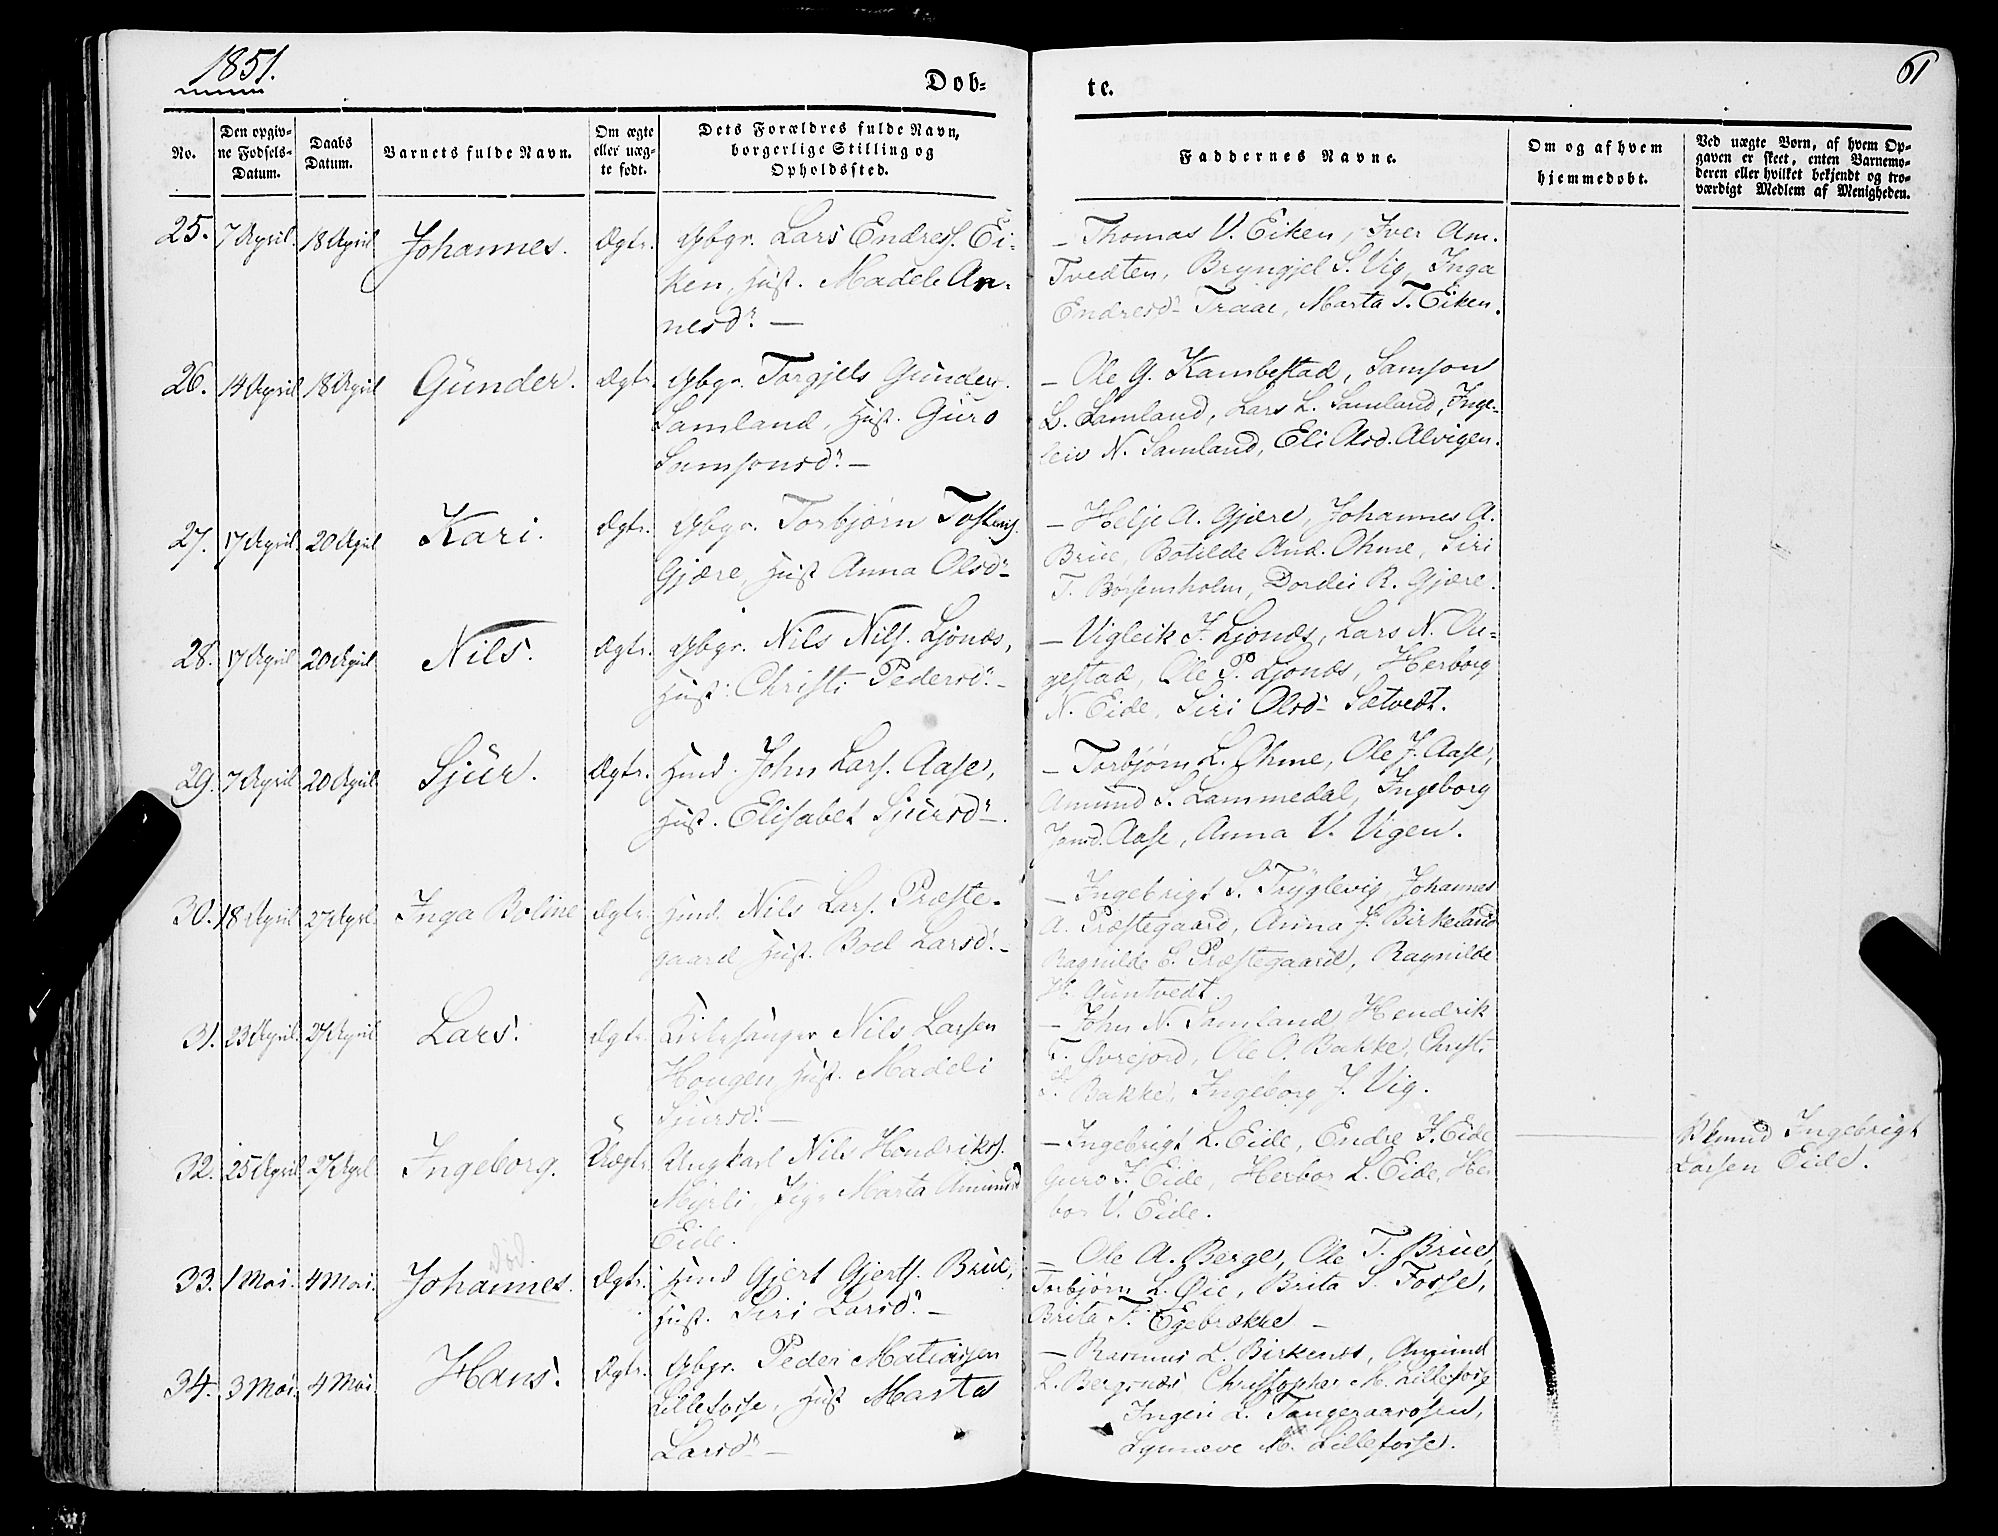 1851.
61
Døb=
te.
No.
Den opgiv=
ne Fødsels=
Datum.
Daabs
Datum.
Barnets fulde Navn.
Om ægte
eller uæg=
te født.
Dets Forældres fulde Navn,
borgerlige Stilling og
Opholdssted.
Faddernes Navne.
Om og af hvem
hjemmedøbt.
Ved uægte Børn, af hvem Op=
gaven er skeet, enten Barnemo=
deren eller hvilket bekjendt og tro=
værdigt Medlem af Menigheden.
25. 7 April. 18 April Johannes. Ægte. Gbgr. Lars Endres. Ei-
ken, Hust. Madele An-
nesd. —
— Thomas V. Eiken, Iver Am.
Tvedten, Bryngjel S. Vig, Inga
Endresd. Traae, Marta T. Eiken.
26. 14 April 18 April Gunder. Ægte. Gbgr. Torgjels Gunders.
Samland, Hust. Guro
Samsonsd. —
— Ole G. Kambestad, Samson
L. Samland, Lars L. Samland, Inge-
leiv N. Samland, Eli Olsd. Alvigen.
27. 17 April. 20 April Kari. Ægte. Gbgr. Torbjørn Tostens.
Gjære, Hust Anna Olsd.
— Helje A. Gjære, Johannes A.
Brue, Botilde And. Ohme, Siri
T. Børsemsholm, Dordei R. Gjære.
28. 17 April 20 April Nils. Ægte. Gbgr. Nils Nils. Ljonæs,
Hust. Christi Pedersd. —
— Vigleik J. Ljonæs, Lars N. Au-
gestad, Ole P. Ljonæs, Herborg
N. Eide, Siri Olsd. Sætvedt.
29. 7 April 20 April Sjur. Ægte. Hmd. John Lars. Aase,
Hust. Elisabet Sjursd.
— Torbjørn L. Ohme, Ole J. Aase,
Amund S. Lammedal, Ingeborg
Jonsd. Aase, Anna V. Vigen.
30. 18 April 27 April Inga Boline Ægte. Hmd. Nils Lars. Præste-
gaard Hust. Boel Larsd. —
— Ingebrigt S. Tryglevig, Johannes
A. Præstegaard, Anna J. Birkeland
Ragnilde E. Præstegaard, Ragnilde
H. Guntvedt.
31. 23 April. 27 April Lars. Ægte. Kirkesanger Nils Larsen
Hougen, Hust. Madeli
Sjursd. —
— John N. Samland, Hendrik
T. Øvrejord, Ole O. Bakke, Christi
S. Bakke, Ingeborg J. Vig.
32. 25 April 27 April Ingeborg. Uægte Ungkarl Nils Hendriks.
Myrli, Pige Marta Amundsd
Eide.
— Ingebrigt L. Eide, Endre J. Eide
Guro J. Eide, Herbor L. Eide, Her
bor V. Eide.
Bkmd Ingebrigt
Larsen Eide.
død.
33. 1 Mai. 4 Mai. Johannes. Ægte. Hmd Gjert Gjerts. Brue,
Hust. Siri Larsd. —
— Ole A. Berge, Ole T. Brue,
Torbjørn L. Øie, Brita S. Fosse,
Brita T. Egebrække —
34. 3 Mai. 4 Mai. Hans. Ægte. Gbgr. Peder Matiassen
Lillefosse, Hust Marta
Larsd. —
— Rasmus L. Birkenes, Amund
L. Bergsnæs Christopher M. Lillefosse
Ingeri L. Tangeraasosen,
Synneve M. Lillefosse.